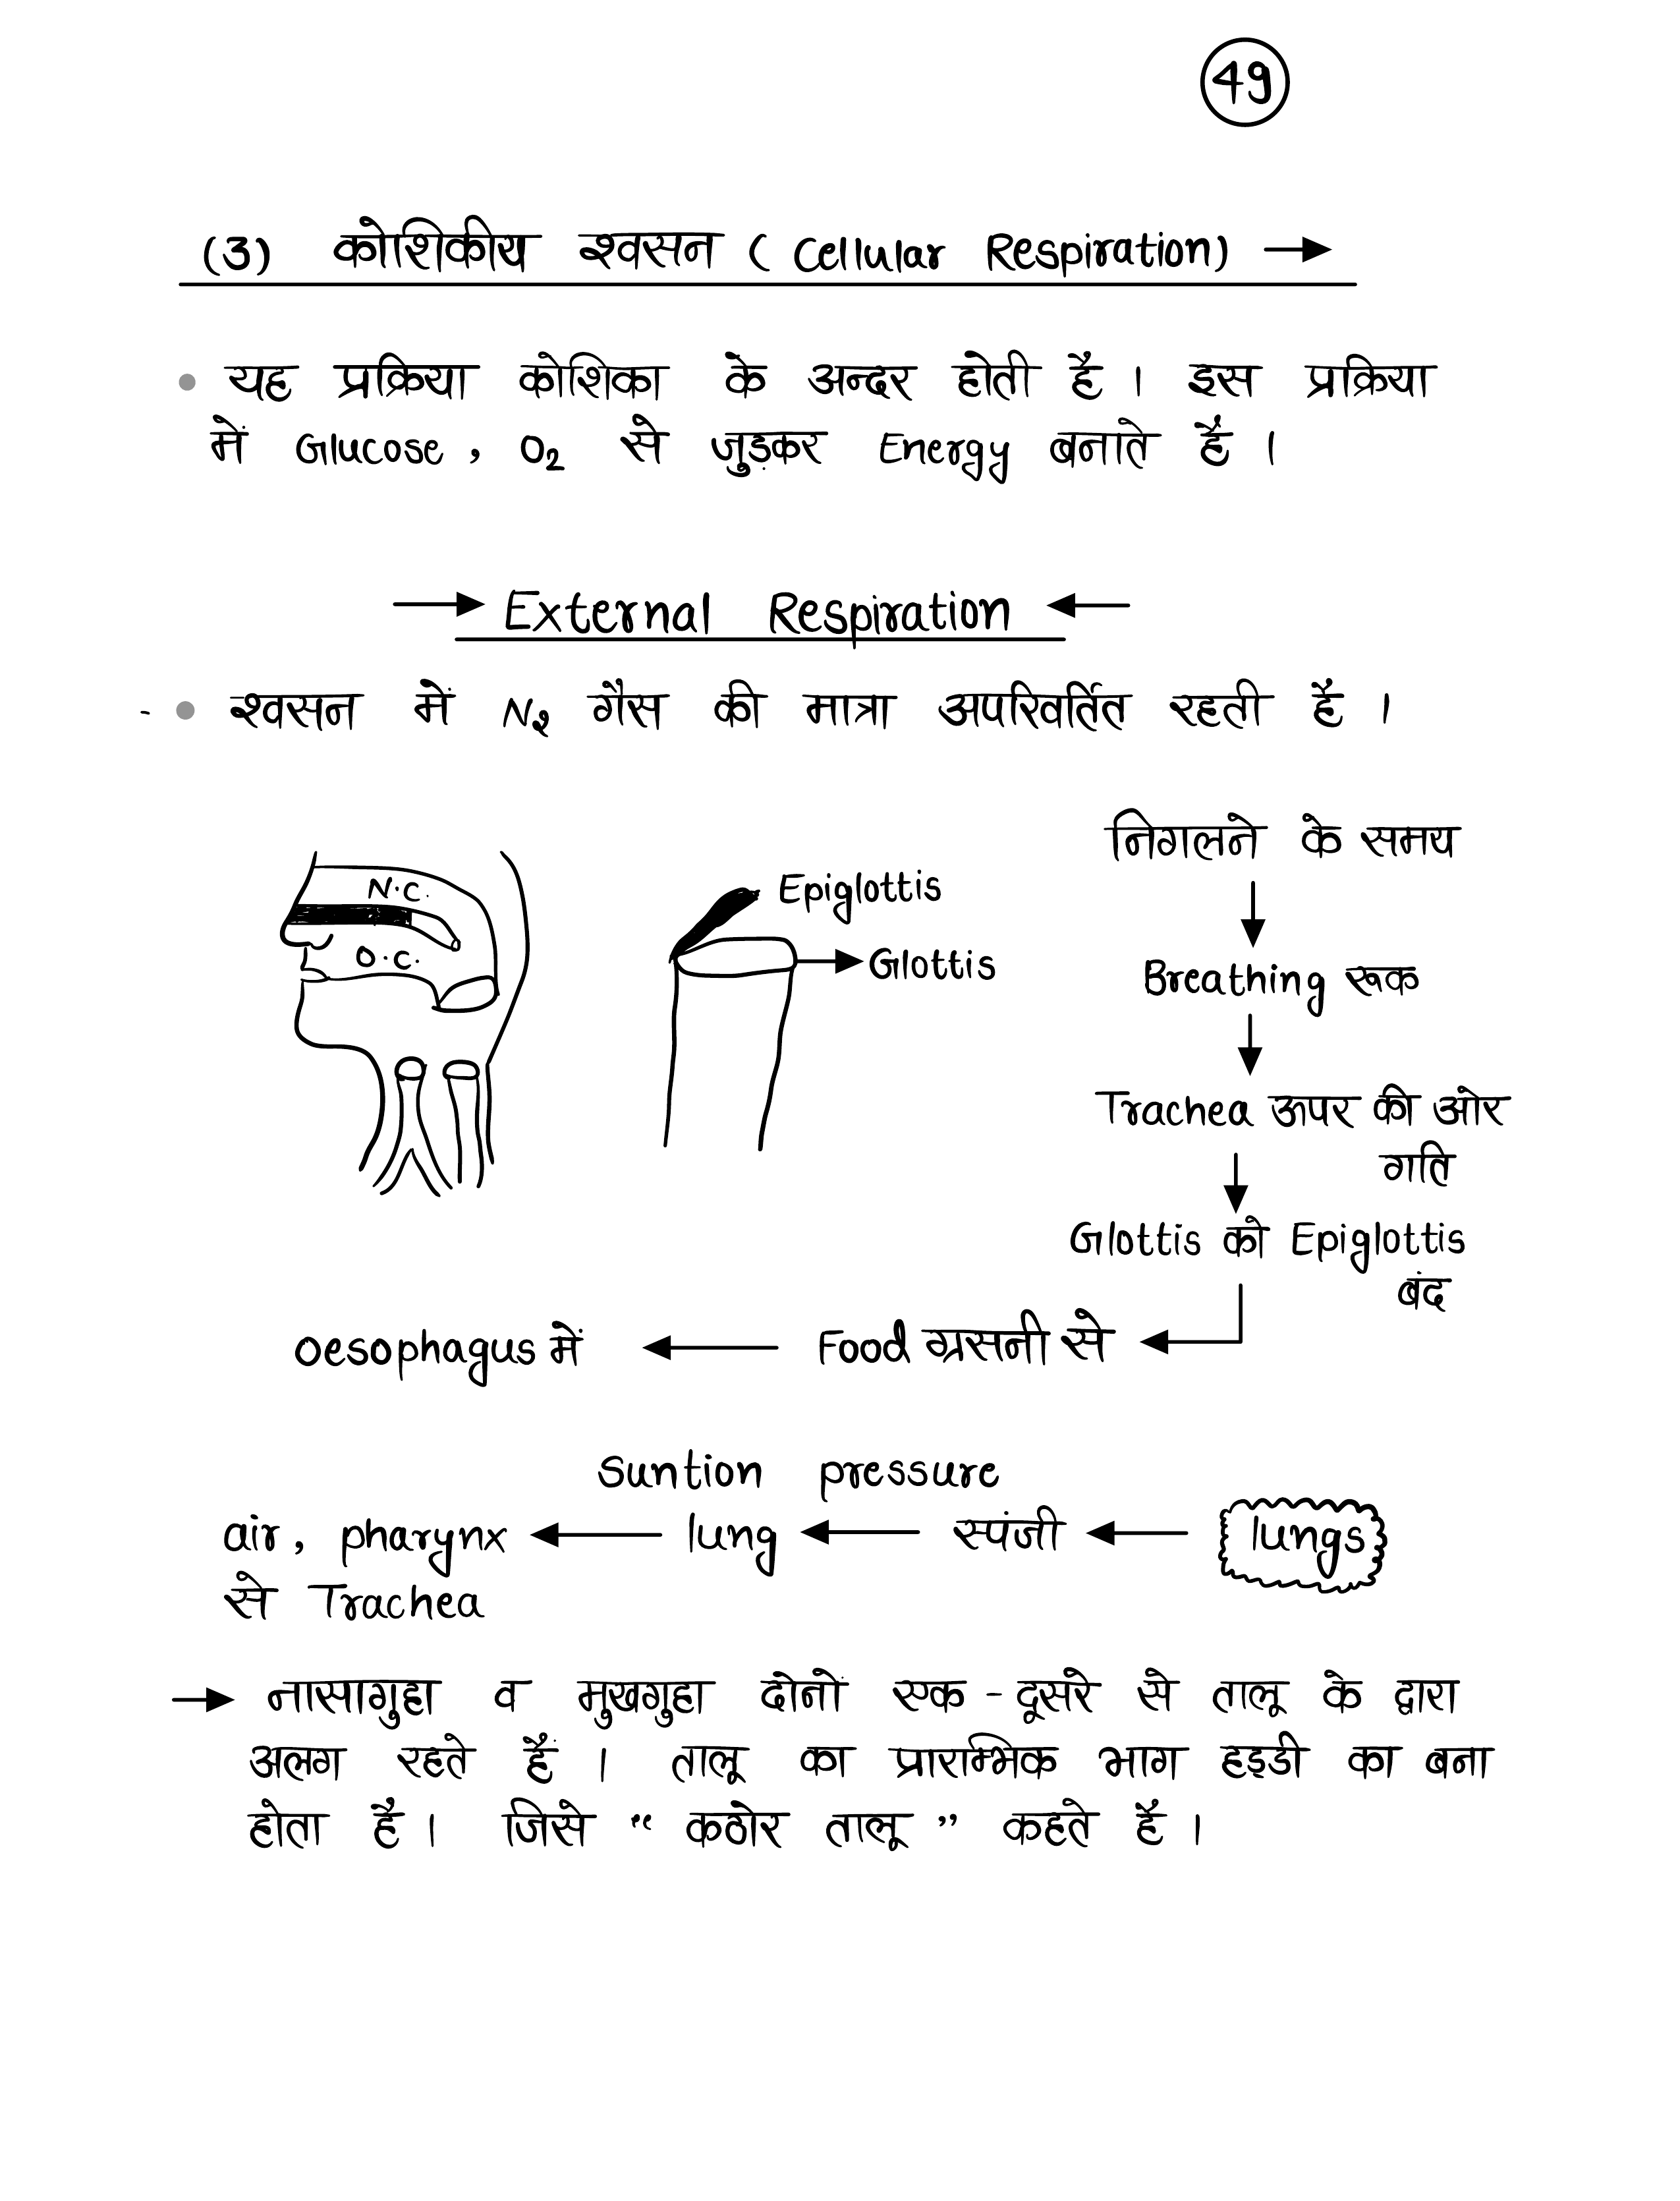 49
(3) कोशिकीय श्वसन ( Cellular Respiration) →
• यह प्रक्रिया कोशिका के अन्दर होती है । इस प्रक्रिया
में Glucose , O₂ से जुड़कर Energy बनाते हैं ।
→ External Respiration ←
- • श्वसन में N₂ गैस की मात्रा अपरिवर्तित रहती हैं ।
N.C.
O.C.
Epiglottis
→ Glottis
निगलने के समय
↓
Breathing रूक
↓
Trachea ऊपर की ओर
गति
↓
Glottis को Epiglottis
बंद
oesophagus में ← Food ग्रसनी से ←
Suntion pressure
air, pharynx ← lung ← स्पंजी ← lungs
से Trachea
→ नासागुहा व मुखगुहा दोनो एक - दूसरे से तालू के द्वारा
अलग रहते हैं । तालू का प्रारम्भिक भाग हड्डी का बना
होता है । जिसे “ कठोर तालू ” कहते हैं ।